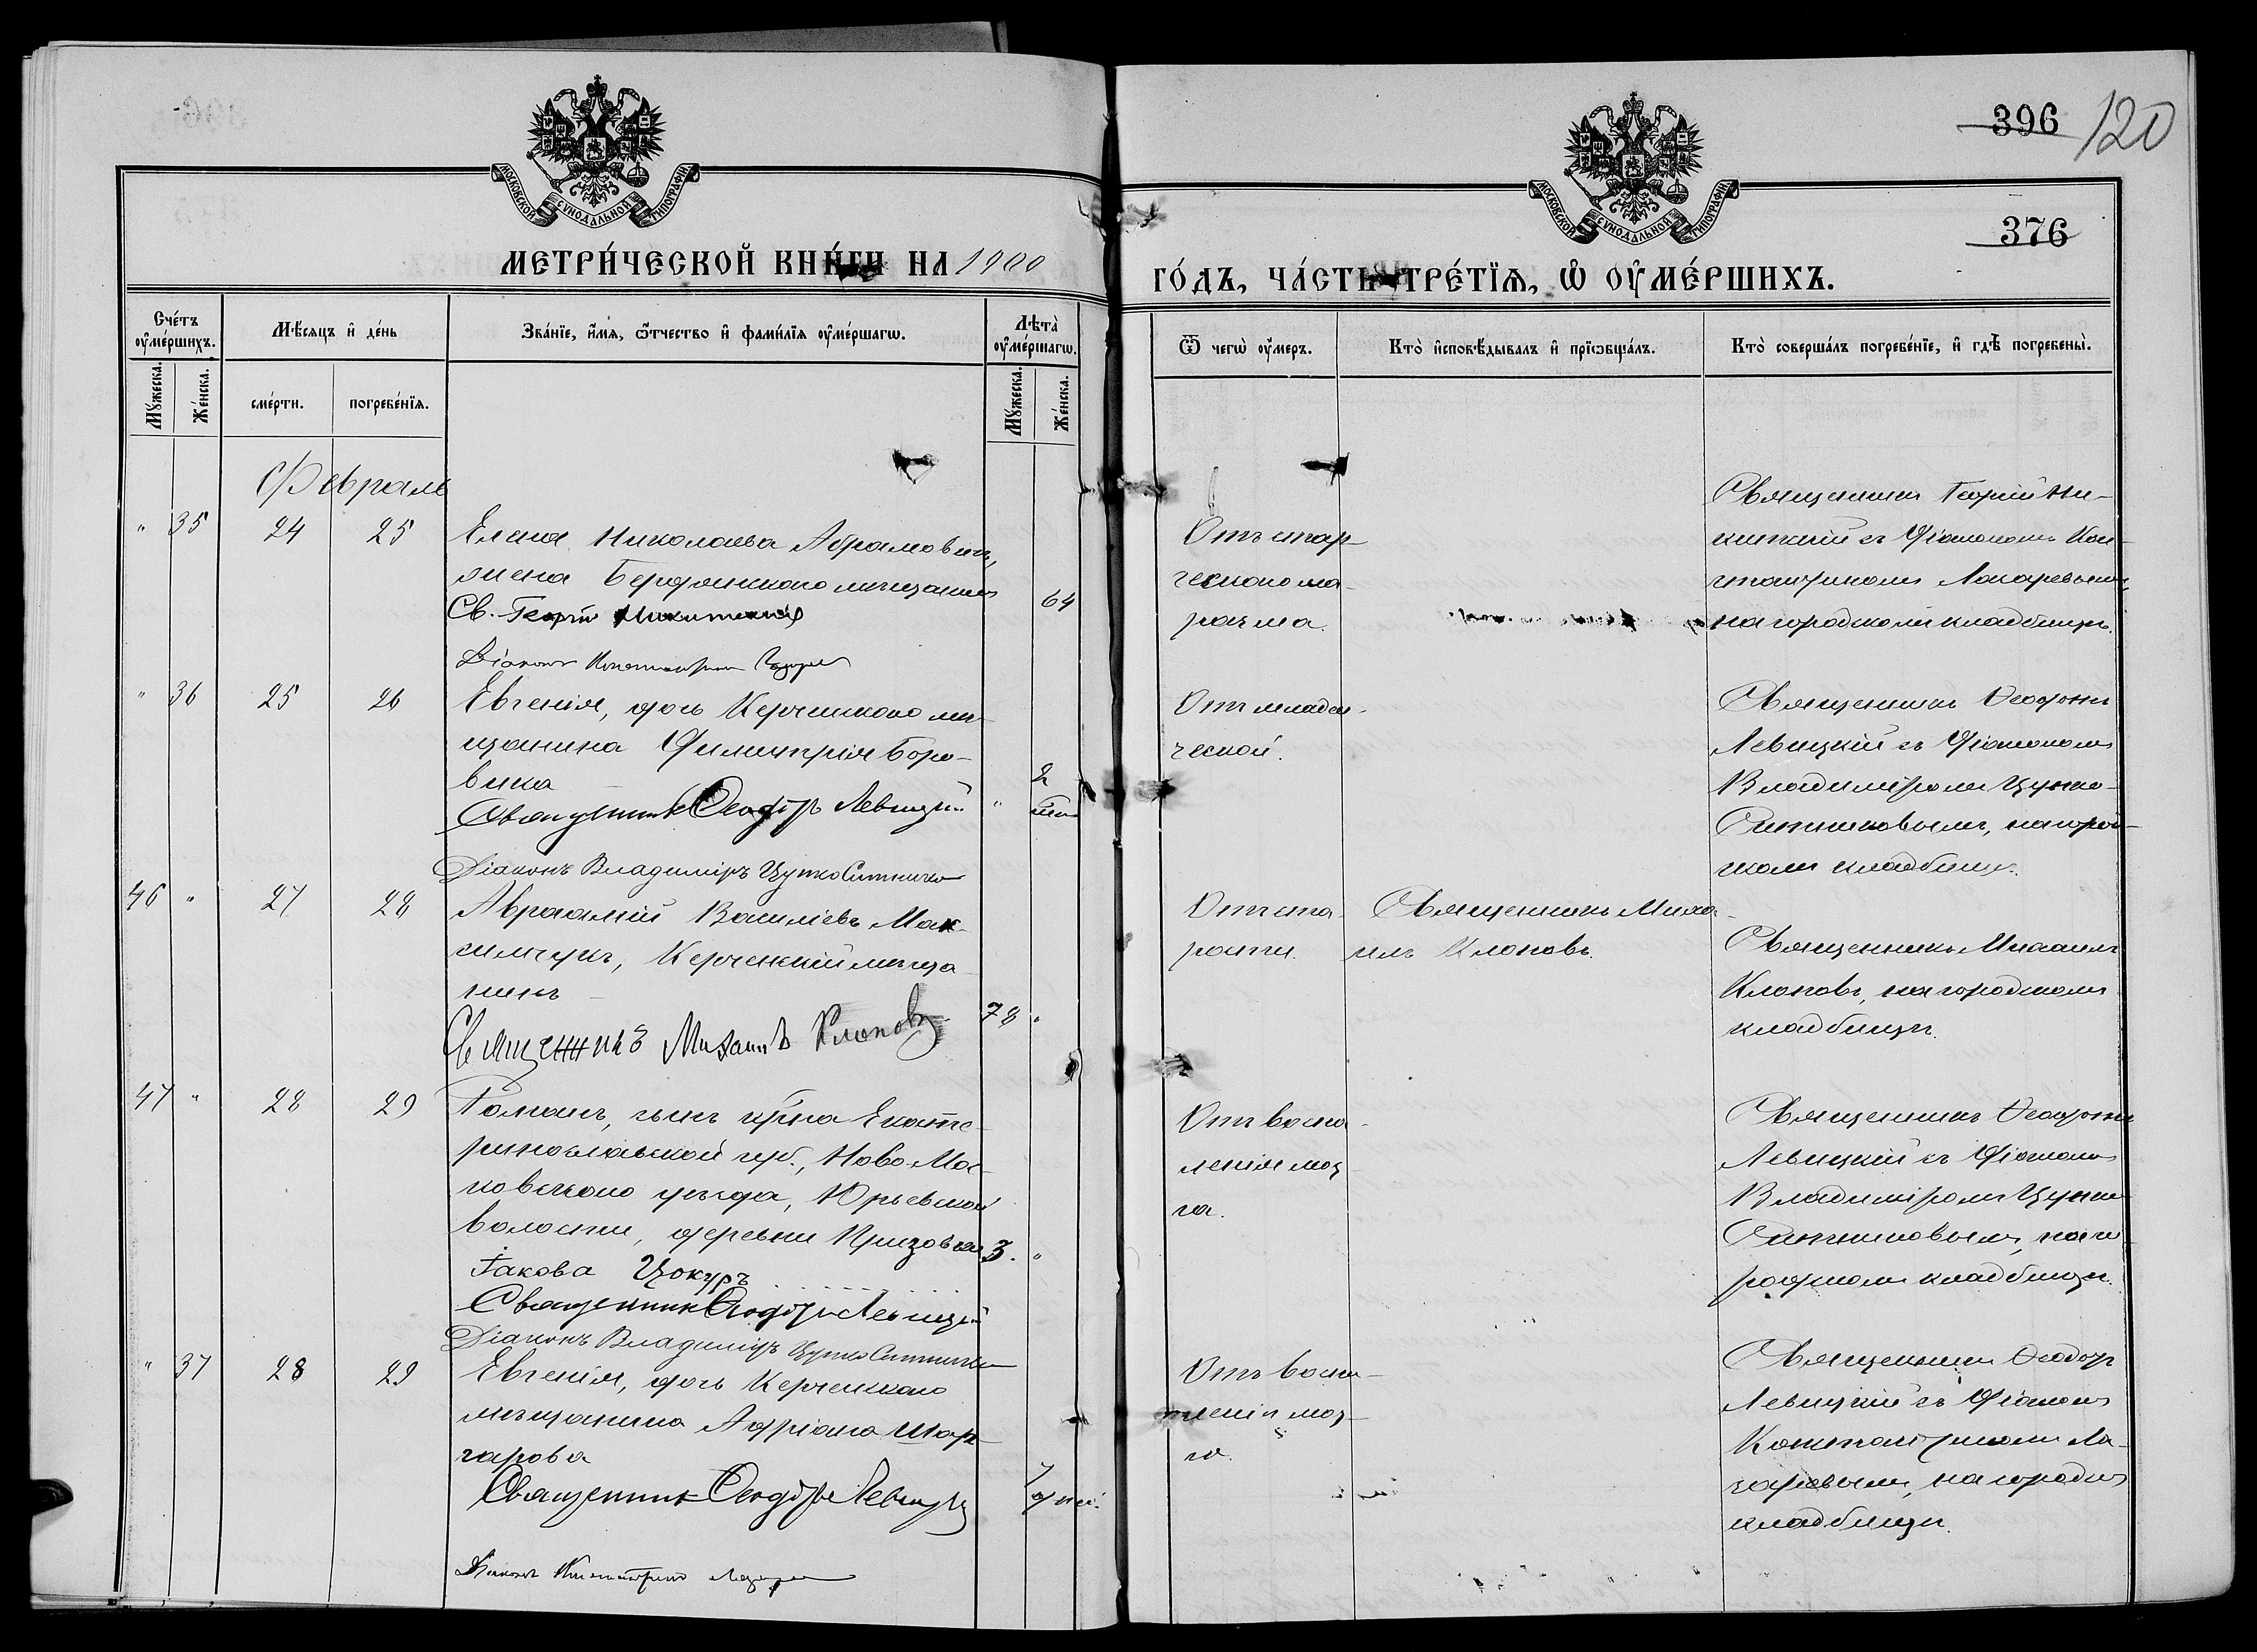 396 120
376
МОСКОВСКОЙ СѴНОДАЛЬНОЙ ТИПОГРАФІИ
МОСКОВСКОЙ СѴНОДАЛЬНОЙ ТИПОГРАФІИ
МЕТРИ́ЧЕСКОЙ КНИ́ГИ НА 1900
ГО́ДЪ, ЧА́СТЬ ТРЕ́ТЇѦ, Ѡ҆ ОУ҆МЕ́РШИХЪ.
Сче́тъ оу҆ме́ршихъ.
Мѣ́сѧцъ и҆ де́нь
Зва́нїе, и҆́мѧ, ѻ҆́тчество и҆ фами́лїѧ оу҆ме́ршагѡ.
Лѣта̀ оу҆ме́ршагѡ.
Ѿ чегѡ̀ оу҆́меръ.
Кто̀ и҆сповѣ́дывалъ и҆ прїѡбща́лъ.
Кто̀ соверша́лъ погребе́нїе, и҆ гдѣ̀ погребены̀.
Му́жеска.
Же́нска.
сме́рти.
погребе́нїѧ.
Му́жеска.
Же́нска.
Февраль
" 35 24 25
Елена Николаева Абрамовичъ,
жена Бердянскаго мѣщанина
Св. Георгій Никитскій
Діаконъ Константинъ
64
Отъ стар-
ческаго ма-
разма.
Священникъ Георгій Ни-
китскій съ Діакономъ Кон-
стантиномъ Лазаревымъ,
на городскомъ кладбищѣ.
" 36 25 26
Евгенія, дочь Керченскаго мѣ-
щанина Димитрія Боро-
вика
Священникъ Ѳеодоръ Левицкій
Діаконъ Владиміръ Цутко Ситников
" 2
Отъ младен-
ческой.
Священникъ Ѳеодоръ
Левицкій съ Діакономъ
Владиміромъ Цутко-
Ситниковымъ, на город-
скомъ кладбищѣ.
46 " 27 28
Авраамій Васильевъ Мак-
симчукъ, Керченскій мѣща-
нинъ
Священникъ Михаилъ Клоповъ
78 "
Отъ ста-
рости.
Священникъ Миха-
илъ Клоповъ.
Священникъ Михаилъ
Клоповъ, на городскомъ
кладбищѣ.
47 " 28 29
Романъ, сынъ кр-на Екате-
ринославской губ., Ново-Мос-
ковскаго уѣзда, Юрьевской
волости, деревни
Іакова Цокуръ
Священникъ Ѳеодоръ Левицкій
Діаконъ Владиміръ Цутко Ситников
3. "
Отъ воспа-
ленія моз-
га.
Священникъ Ѳеодоръ
Левицкій съ Діакономъ
Владиміромъ Цутко
Ситниковымъ, на го-
родскомъ кладбищѣ.
" 37 28 29
Евгенія, дочь Керченскаго
мѣщанина Адріана Шар-
гарова
Священникъ Ѳеодоръ Левицкій
Діаконъ Константинъ Лазарев
7 дней.
Отъ воспа-
ленія моз-
га.
Священникъ Ѳеодоръ
Левицкій съ Діакономъ
Константиномъ Ла-
заревымъ, на городск
кладбищѣ.